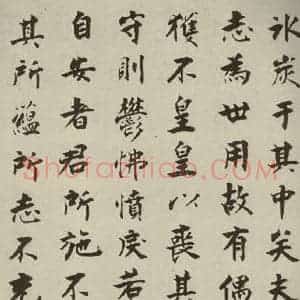 冰炭于其中矣夫
志為世用故有偶
獲不皇皇以喪其
守則鬱怫憤戾若
自安者君所施不
其所蘊所志不